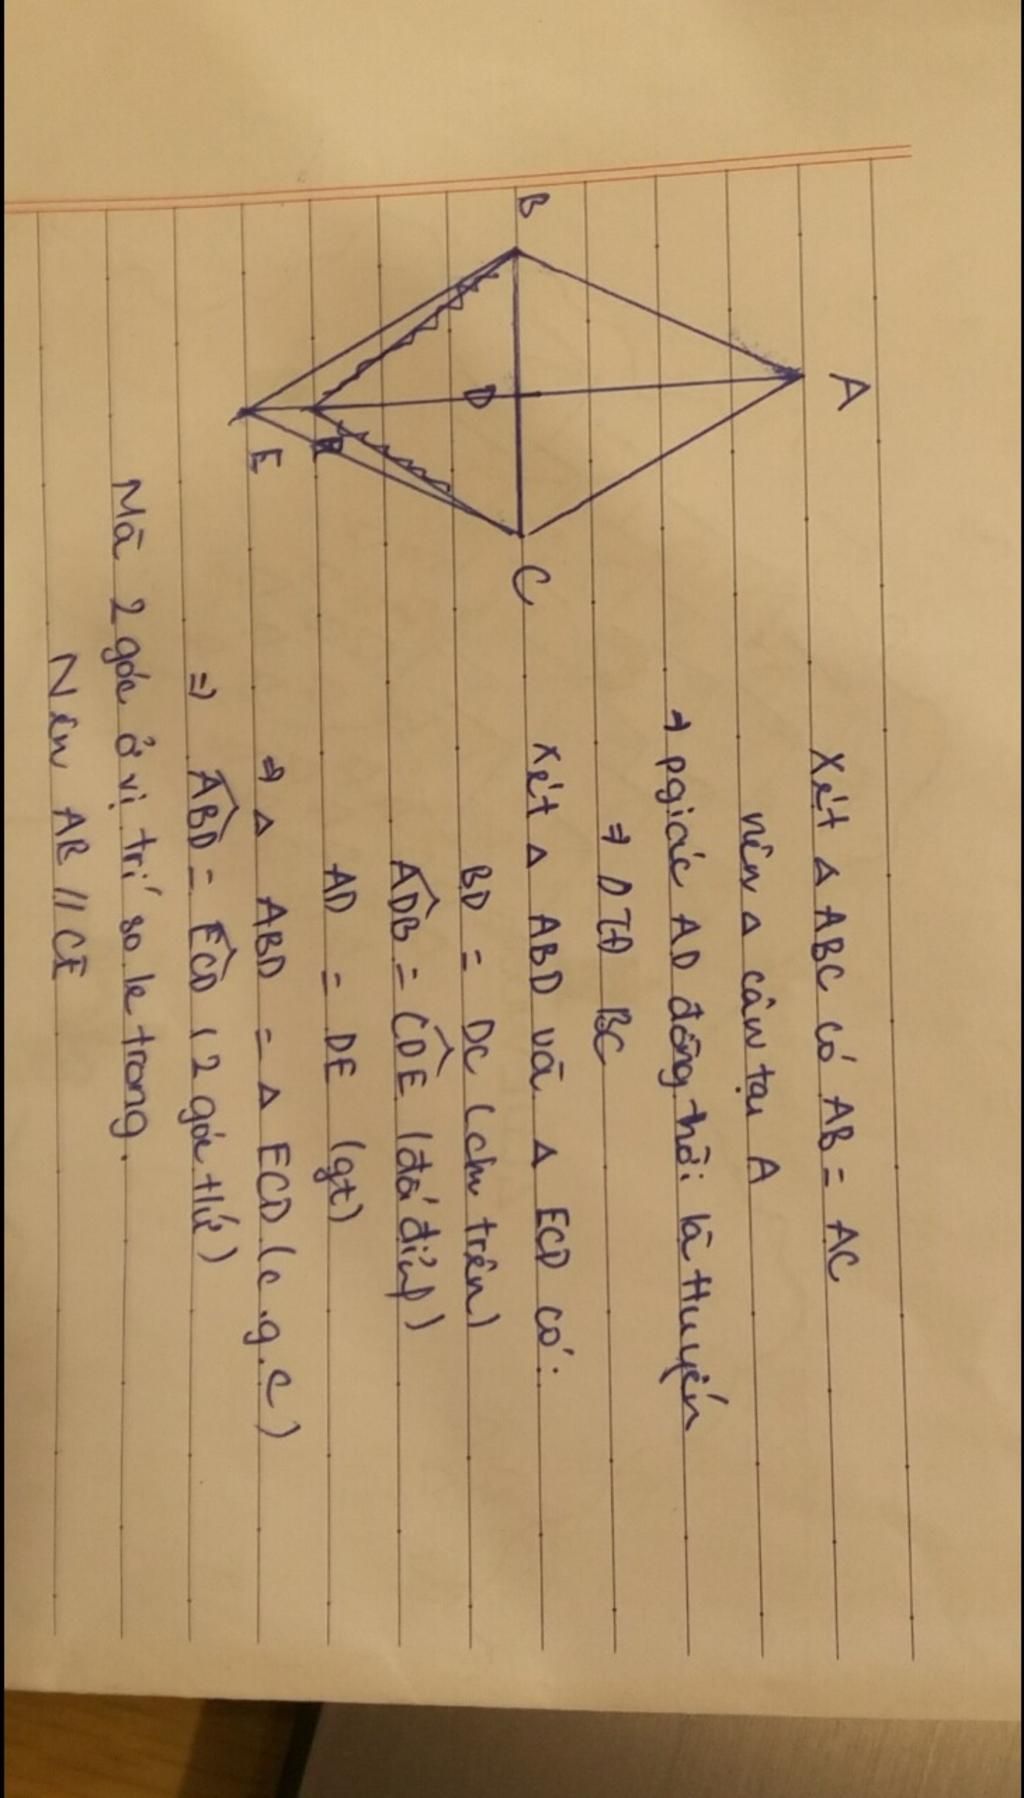 A
B
D
C
E
Xét Δ ABC có AB = AC
nên Δ cân tại A
⇒ pgiác AD đồng thời là ttuyến
⇒ D TĐ BC
Xét Δ ABD và Δ ECD có:
BD = DC (cm trên)
ADB = CDE (đối đỉnh)
AD = DE (gt)
⇒ Δ ABD = Δ ECD (c.g.c)
⇒ ABD = ECD (2 góc tứ)
Mà 2 góc ở vị trí so le trong.
Nên AB // CE